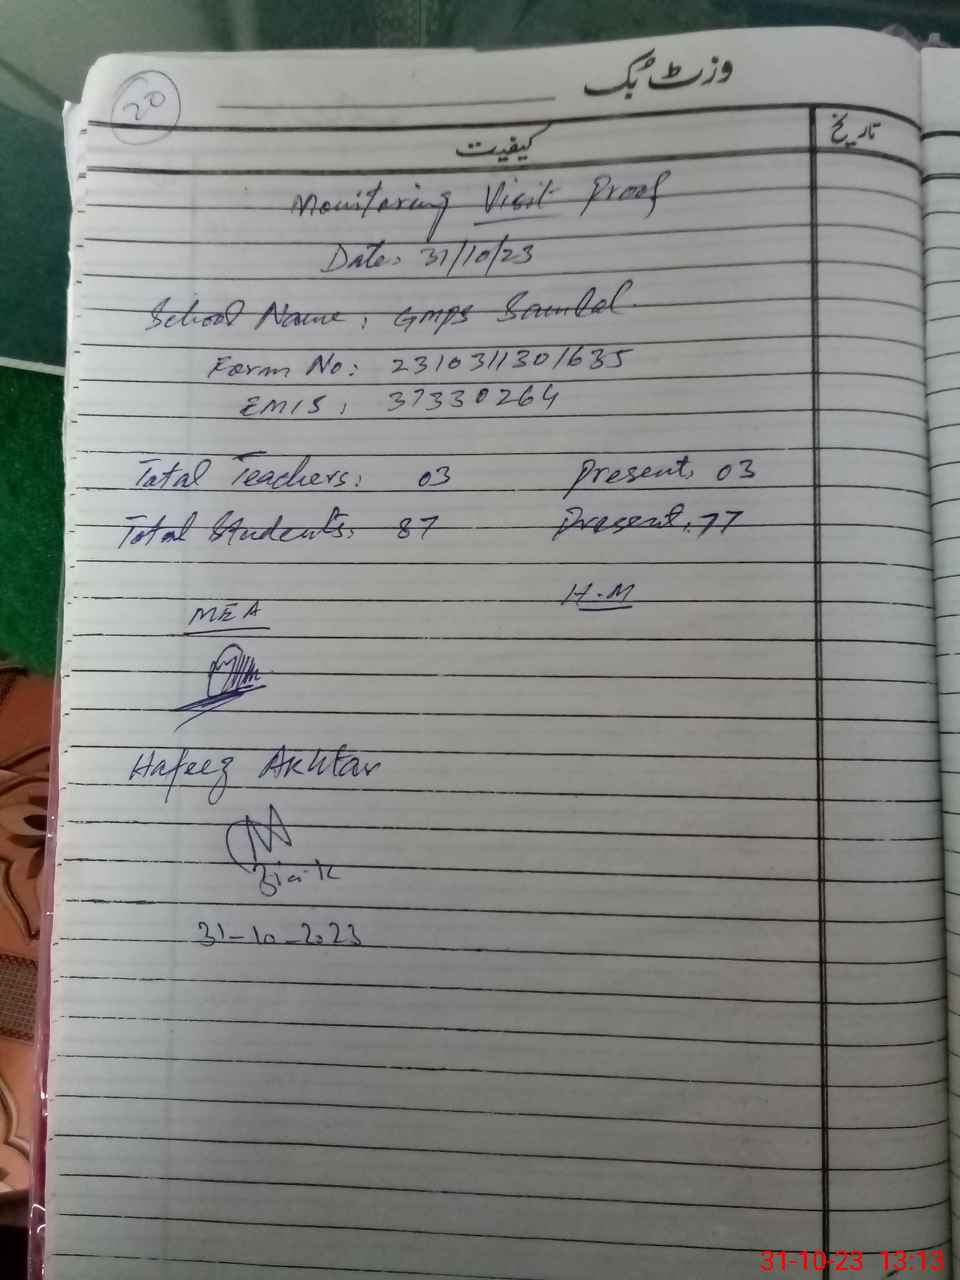 وزٹ بک
20
کیفیت
تاریخ
Monitoring Visit Proof
Date: 31/10/23
School Name: GMPS Sambal
Form No: 2310311301635
EMIS: 37330264
Total Teachers: 03 Present: 03
Total Students: 87 Present: 77
MEA H.M
Hafeez Akhtar
31-10-2023
31-10-23 13:13